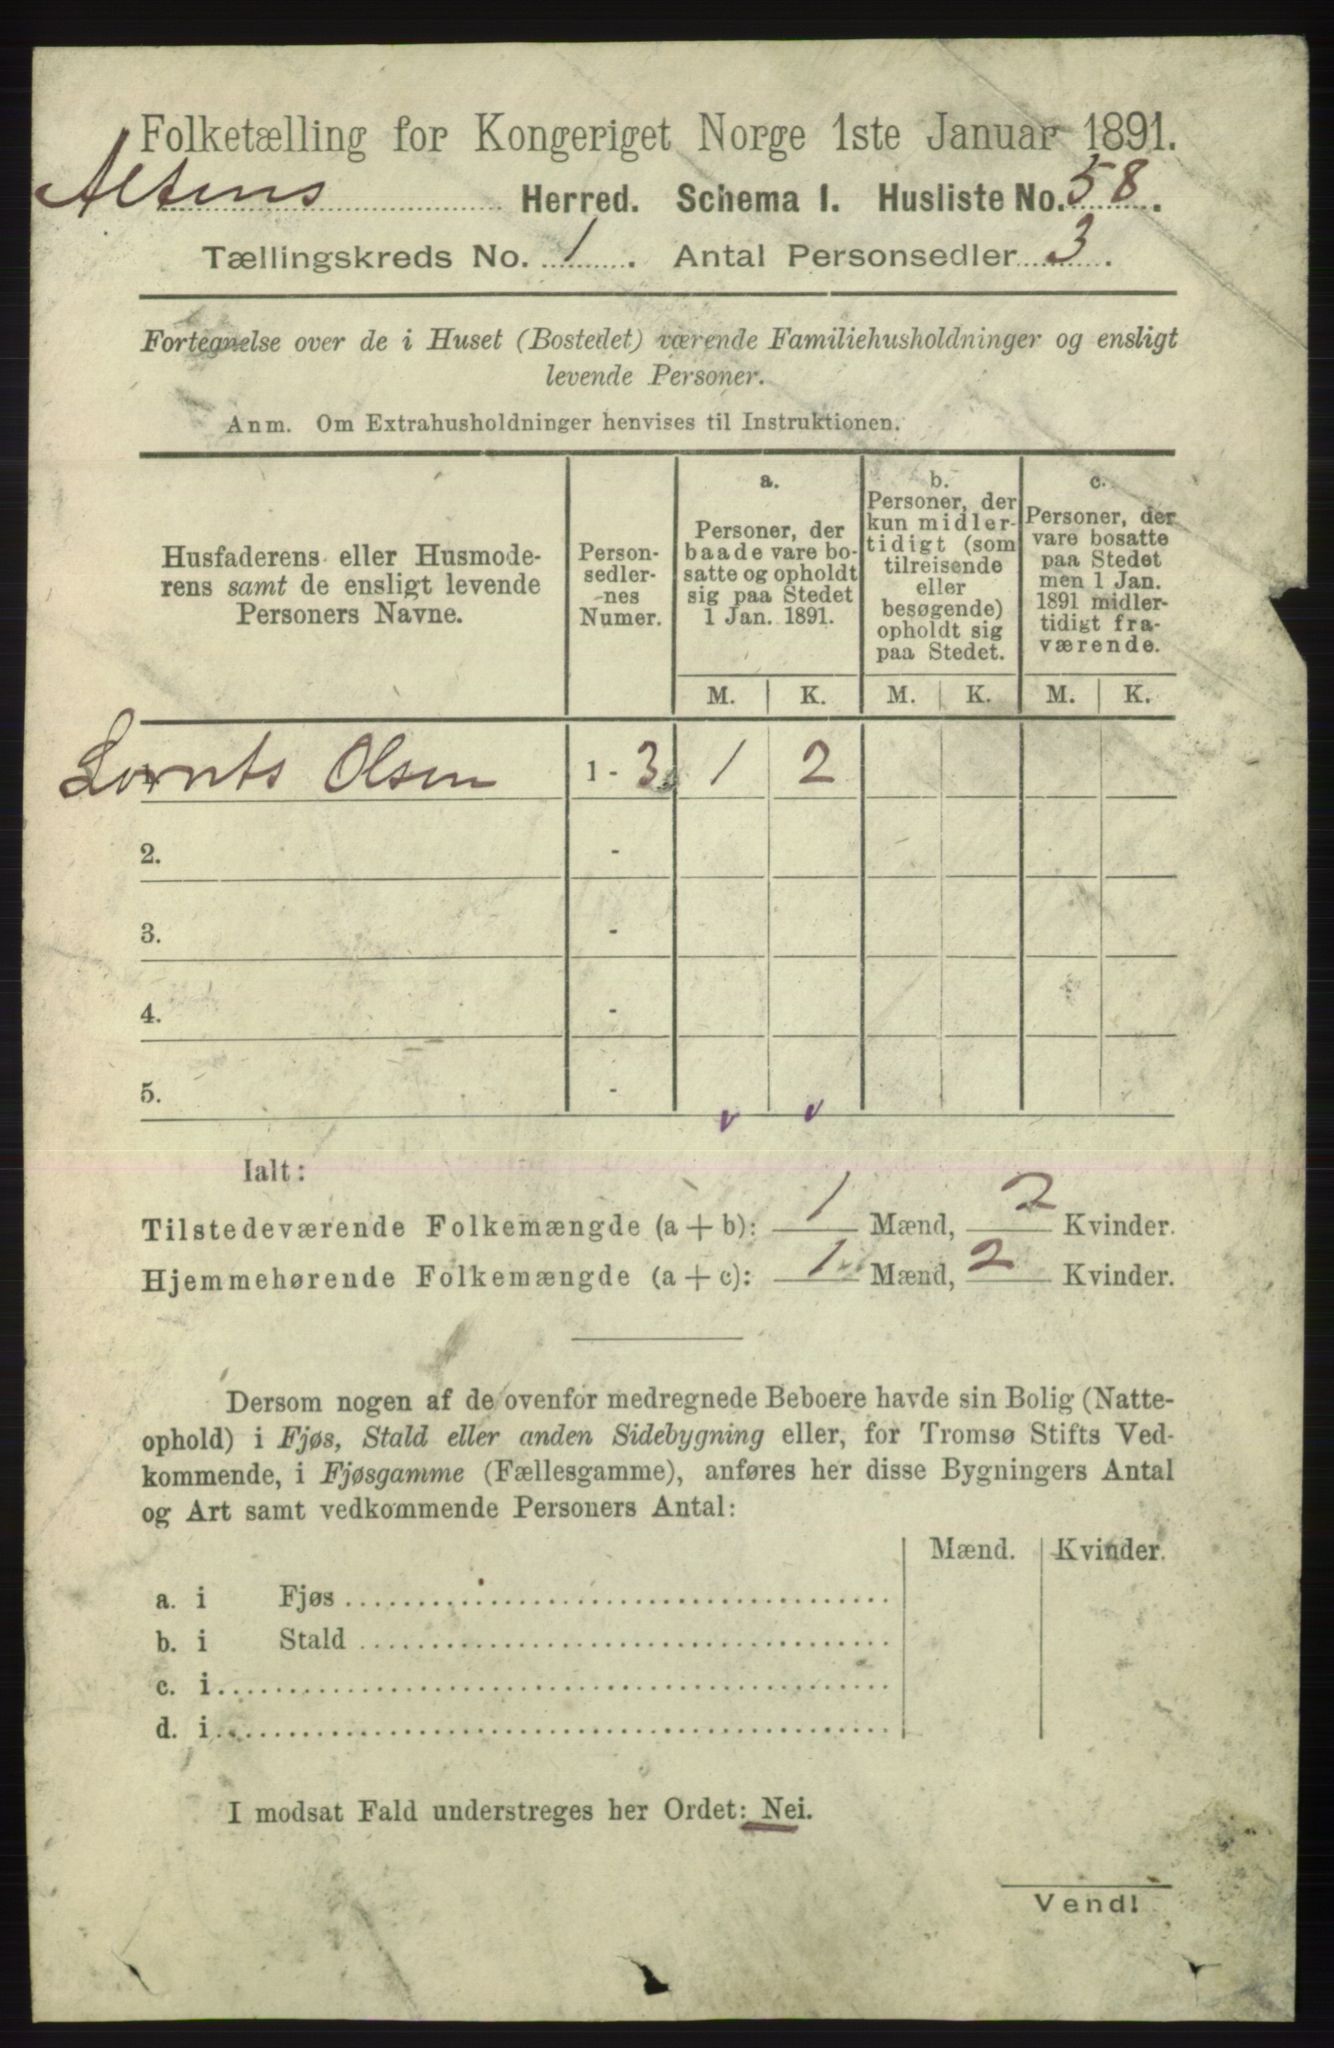 Folketælling for Kongeriget Norge 1ste Januar 1891.
Altens Herred. Schema 1. Husliste No. 58.
Tællingskreds No. 1. Antal Personsedler 3.
Fortegnelse over de i Huset (Bostedet) værende Familiehusholdninger og ensligt
levende Personer.
Anm. Om Extrahusholdninger henvises til Instruktionen.
Husfaderens eller Husmode-
rens samt de ensligt levende
Personers Navne.
Person-
sedler-
nes
Numer.
a.
Personer, der
baade vare bo-
satte og opholdt
sig paa Stedet
1 Jan. 1891.
b.
Personer, der
kun midler-
tidigt (som
tilreisende
eller
besøgende)
opholdt sig
paa Stedet.
c.
Personer, der
vare bosatte
paa Stedet
men 1 Jan.
1891 midler-
tidigt fra-
værende.
M. K. M. K. M. K.
Lornts Olsen 1 - 3 1 2
2. -
3. -
4. -
5. -
Ialt:
Tilstedeværende Folkemængde (a + b): 1 Mænd, 2 Kvinder.
Hjemmehørende Folkemængde (a + c): 1 Mænd, 2 Kvinder.
Dersom nogen af de ovenfor medregnede Beboere havde sin Bolig (Natte-
ophold) i Fjøs, Stald eller anden Sidebygning eller, for Tromsø Stifts Ved-
kommende, i Fjøsgamme (Fællesgamme), anføres her disse Bygningers Antal
og Art samt vedkommende Personers Antal:
Mænd. Kvinder.
a. i Fjøs
b. i Stald
c. i
d. i
I modsat Fald understreges her Ordet: Nei.
Vend!